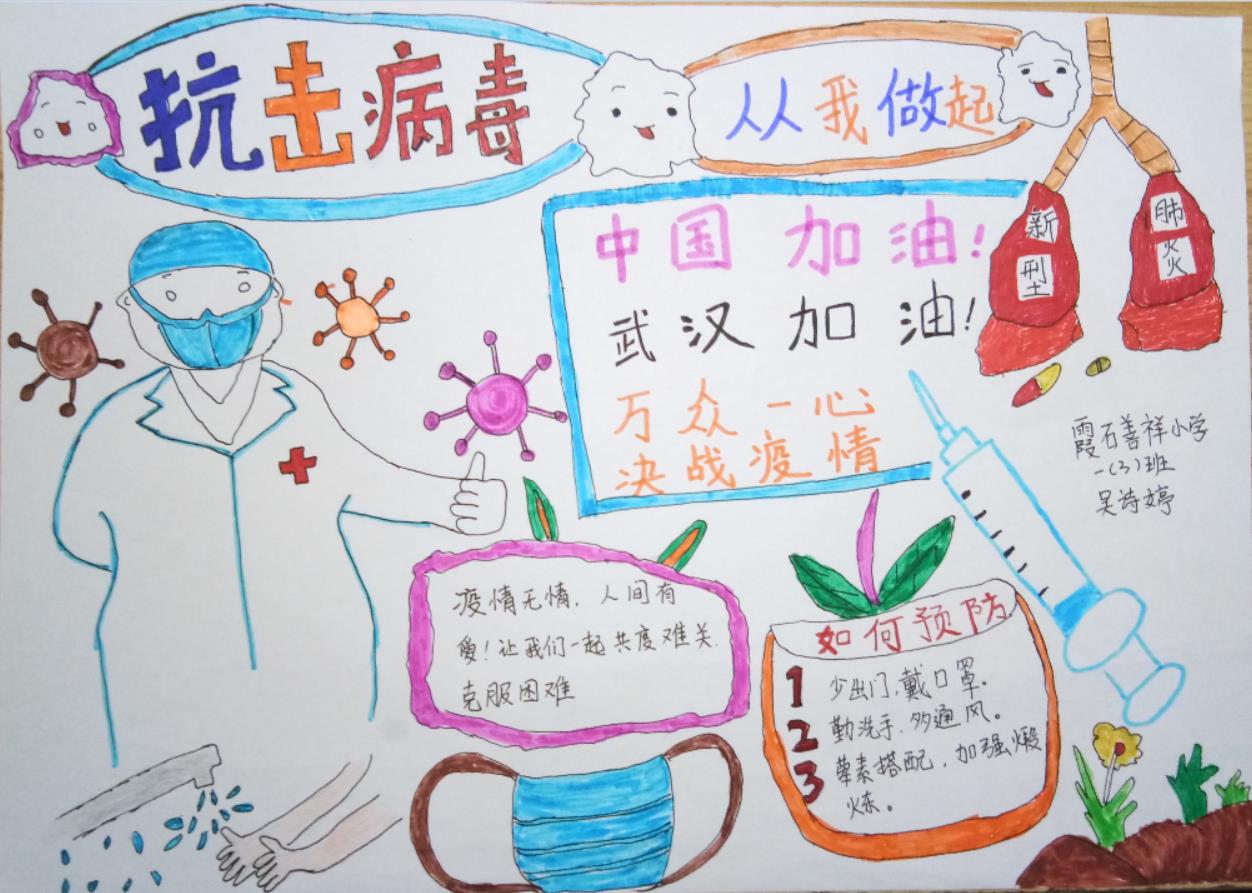 抗击病毒
从我做起
中国加油!
武汉加油!
万众一心
决战疫情
新型
肺炎
霞石善祥小学
一(3)班
吴诗婷
疫情无情,人间有
爱!让我们一起共度难关.
克服困难
如何预防
1 少出门,戴口罩。
2 勤洗手,多通风。
3 荤素搭配,加强煅
炼。